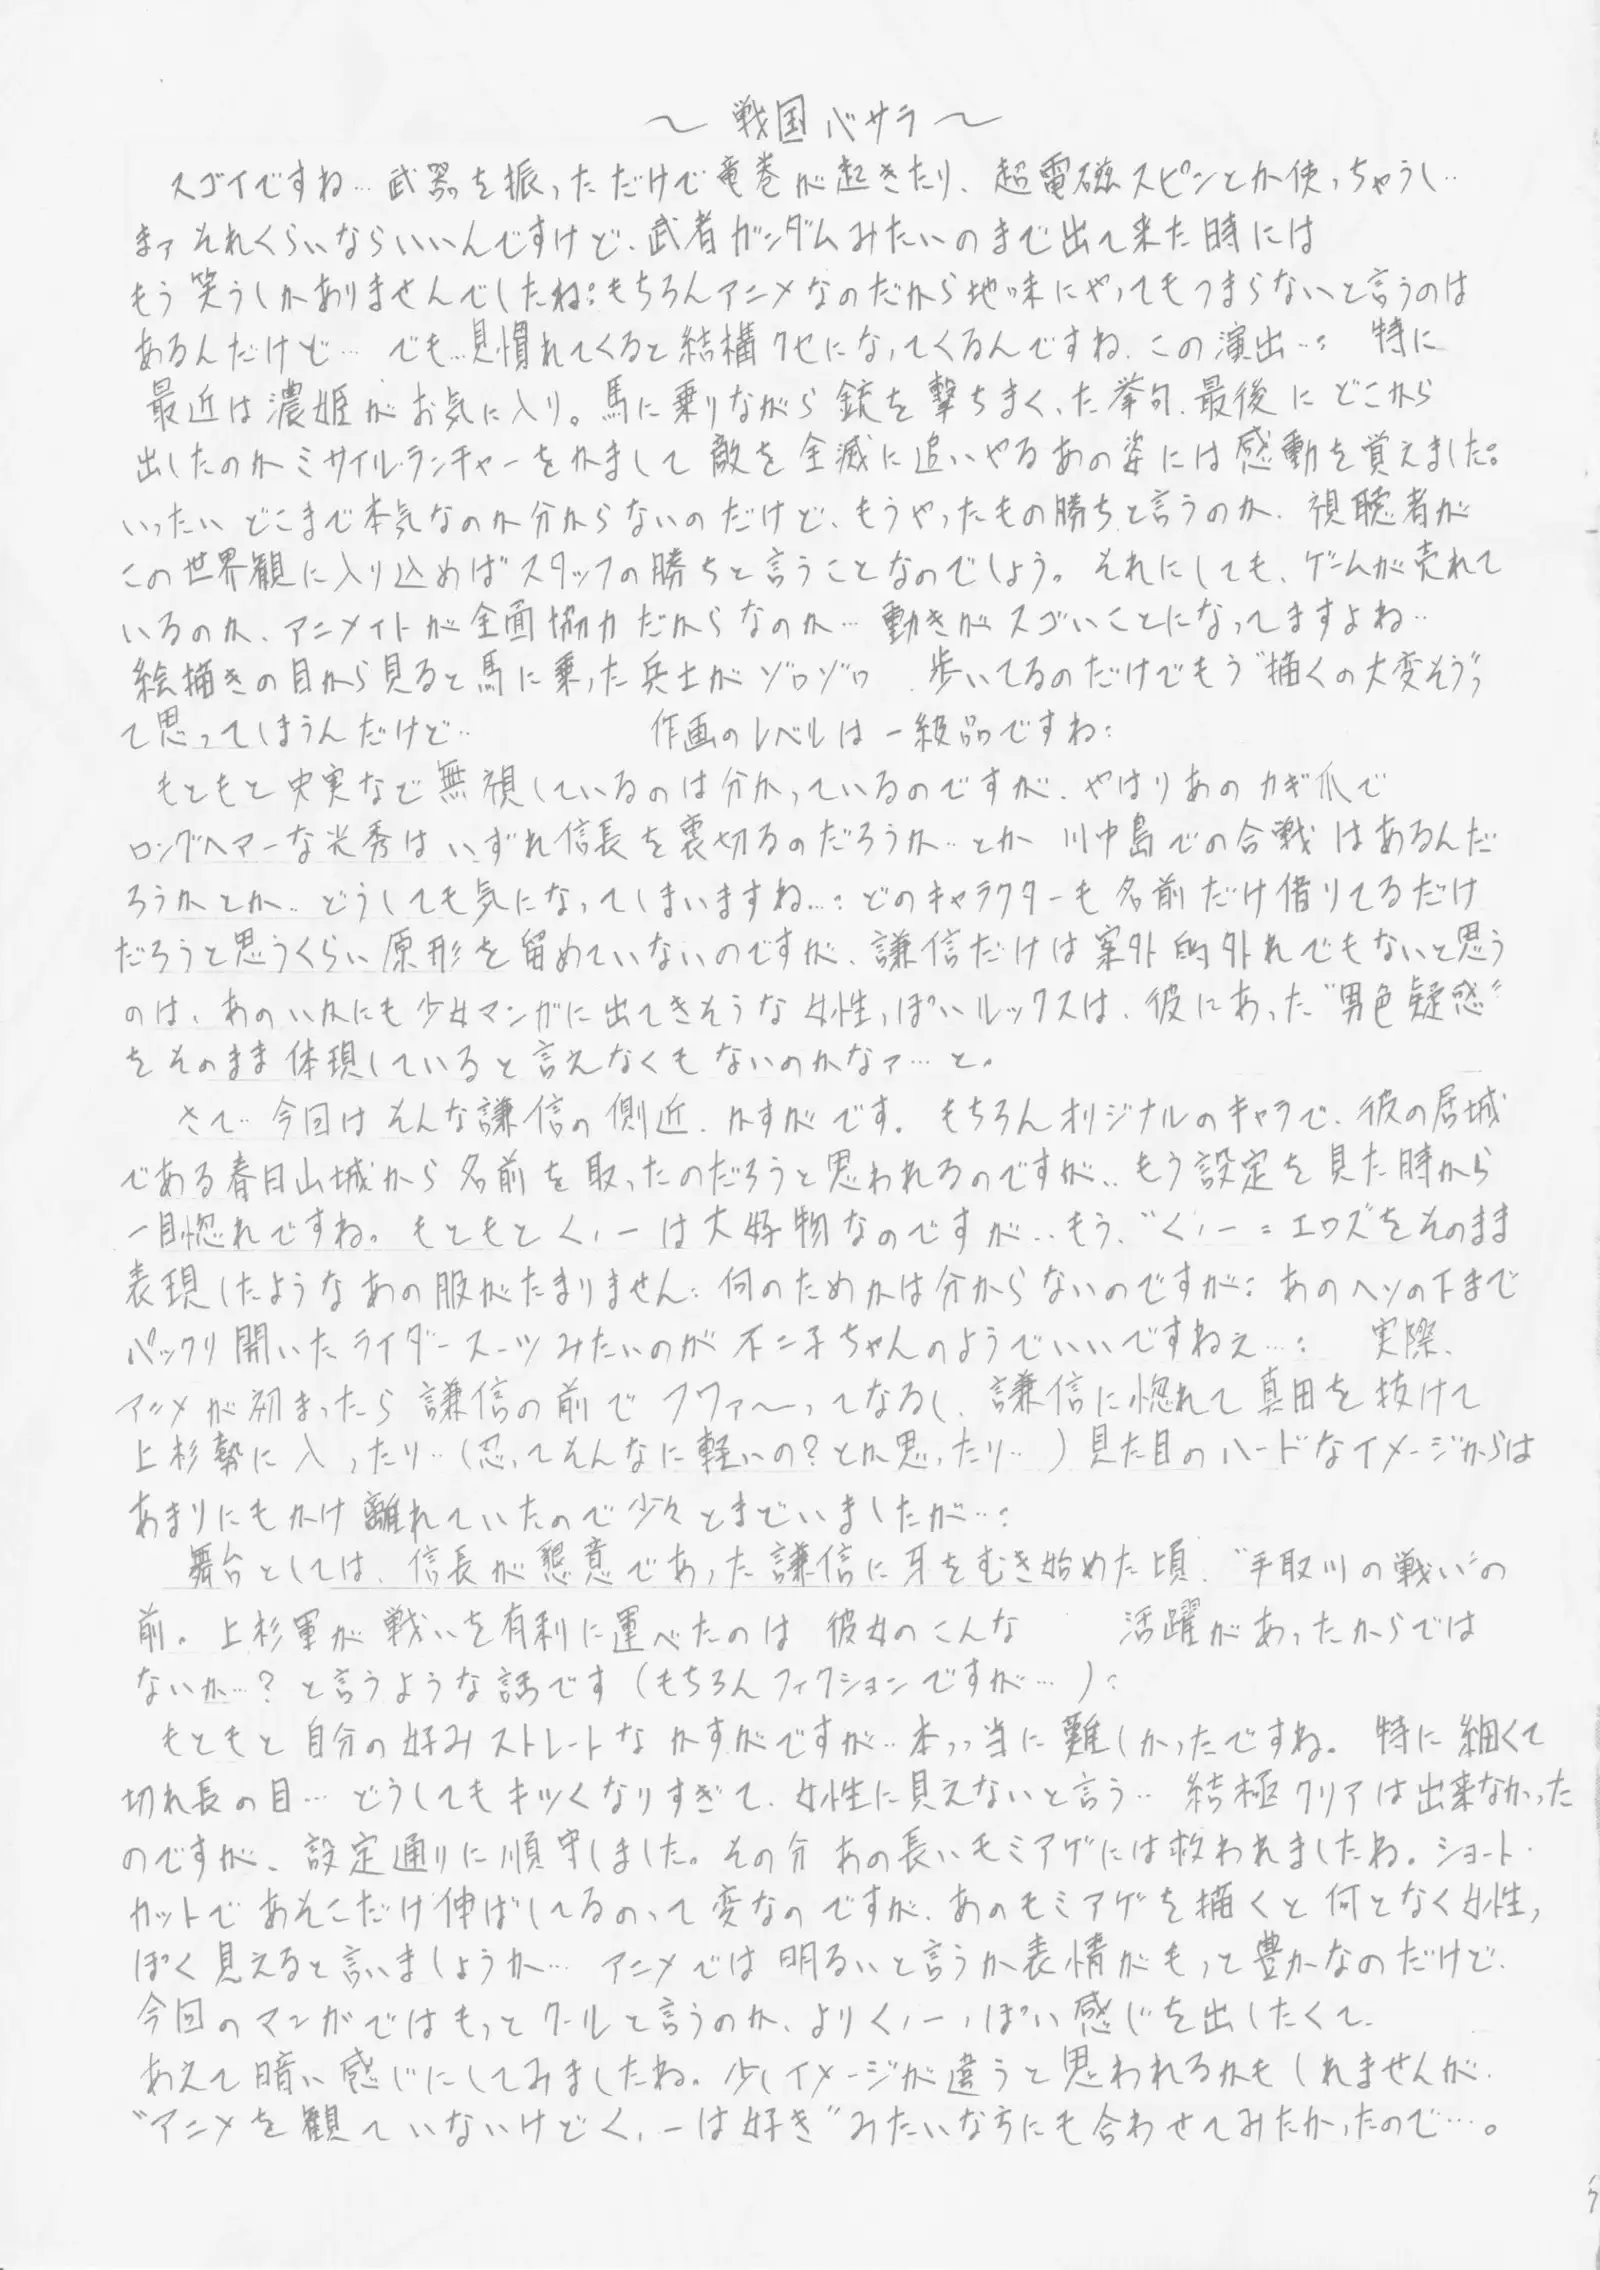 ～戦国バサラ～
スゴイですね… 武器を振っただけで竜巻が起きたり、超電磁スピンとか使っちゃうし…
まァそれくらいならいいんですけど、武者ガンダムみたいのまで出て来た時には
もう笑うしかありませんでしたね: もちろんアニメなのだから地味にやってもつまらないと言うのは
あるんだけど… でも…見慣れてくると結構クセになってくるんですね、この演出…: 特に
最近は濃姫がお気に入り。馬に乗りながら銃を撃ちまくった挙句、最後にどこから
出したのかミサイル・ランチャーをかまして敵を全滅に追いやるあの姿には感動を覚えました。
いったいどこまで本気なのか分からないのだけど、もうやったもの勝ちと言うのか、視聴者が
この世界観に入り込めばスタッフの勝ちと言うことなのでしょう。それにしても、ゲームが売れて
いるのか、アニメイトが全面協力だからなのか… 動きがスゴいことになってますよね…
絵描きの目から見ると馬に乗った兵士がゾロゾロ 歩いてるのだけでもう“描くの大変そう”っ
て思ってしまうんだけど… 作画のレベルは一級品ですね:
もともと史実など無視しているのは分かっているのですが、やはりあのカギ爪で
ロングヘアーな光秀はいずれ信長を裏切るのだろうか…とか 川中島での合戦はあるんだ
ろうかとか… どうしても気になってしまいますね…: どのキャラクターも名前だけ借りてるだけ
だろうと思うくらい原形を留めていないのですが、謙信だけは案外的外れでもないと思う
のは、あのいかにも少女マンガに出てきそうな女性っぽいルックスは、彼にあった“男色疑惑”
をそのまま体現していると言えなくもないのかなァ…と。
さて… 今回はそんな謙信の側近、かすがです。もちろんオリジナルのキャラで、彼の居城
である春日山城から名前を取ったのだろうと思われるのですが… もう設定を見た時から
一目惚れですね。もともとくノ一は大好物なのですが… もう、“くノ一=エロス”をそのまま
表現したようなあの服がたまりません: 何のためかは分からないのですが: あのヘソの下まで
パックリ開いたライダースーツみたいのが不二子ちゃんのようでいいですねぇ…: 実際、
アニメが初まったら謙信の前でフワァ〜ってなるし、謙信に惚れて真田を抜けて
上杉勢に入ったり…(忍ってそんなに軽いの?とか思ったり…)見た目のハードなイメージからは
あまりにもかけ離れていたので少々とまどいましたが…:
舞台としては、信長が懇意であった謙信に牙をむき始めた頃、“手取川の戦い”の
前。上杉軍が戦いを有利に運べたのは彼女のこんな 活躍があったからでは
ないか…? と言うような話です(もちろんフィクションですが…):
もともと自分の好みストレートなかすがですが… 本っ当に難しかったですね。特に細くて
切れ長の目… どうしてもキツくなりすぎて、女性に見えないと言う… 結極クリアは出来なかった
のですが、設定通りに順守しました。その分あの長いモミアゲには救われましたね。ショート・
カットであそこだけ伸ばしてるのって変なのですが、あのモミアゲを描くと何となく女性っ
ぽく見えると言いましょうか… アニメでは明るいと言うか表情がもっと豊かなのだけど、
今回のマンガではもっとクールと言うのか、よりくノ一っぽい感じを出したくて、
あえて暗い感じにしてみましたね。少しイメージが違うと思われるかもしれませんが、
“アニメを観ていないけどくノ一は好き”みたいな方にも合わせてみたかったので…。